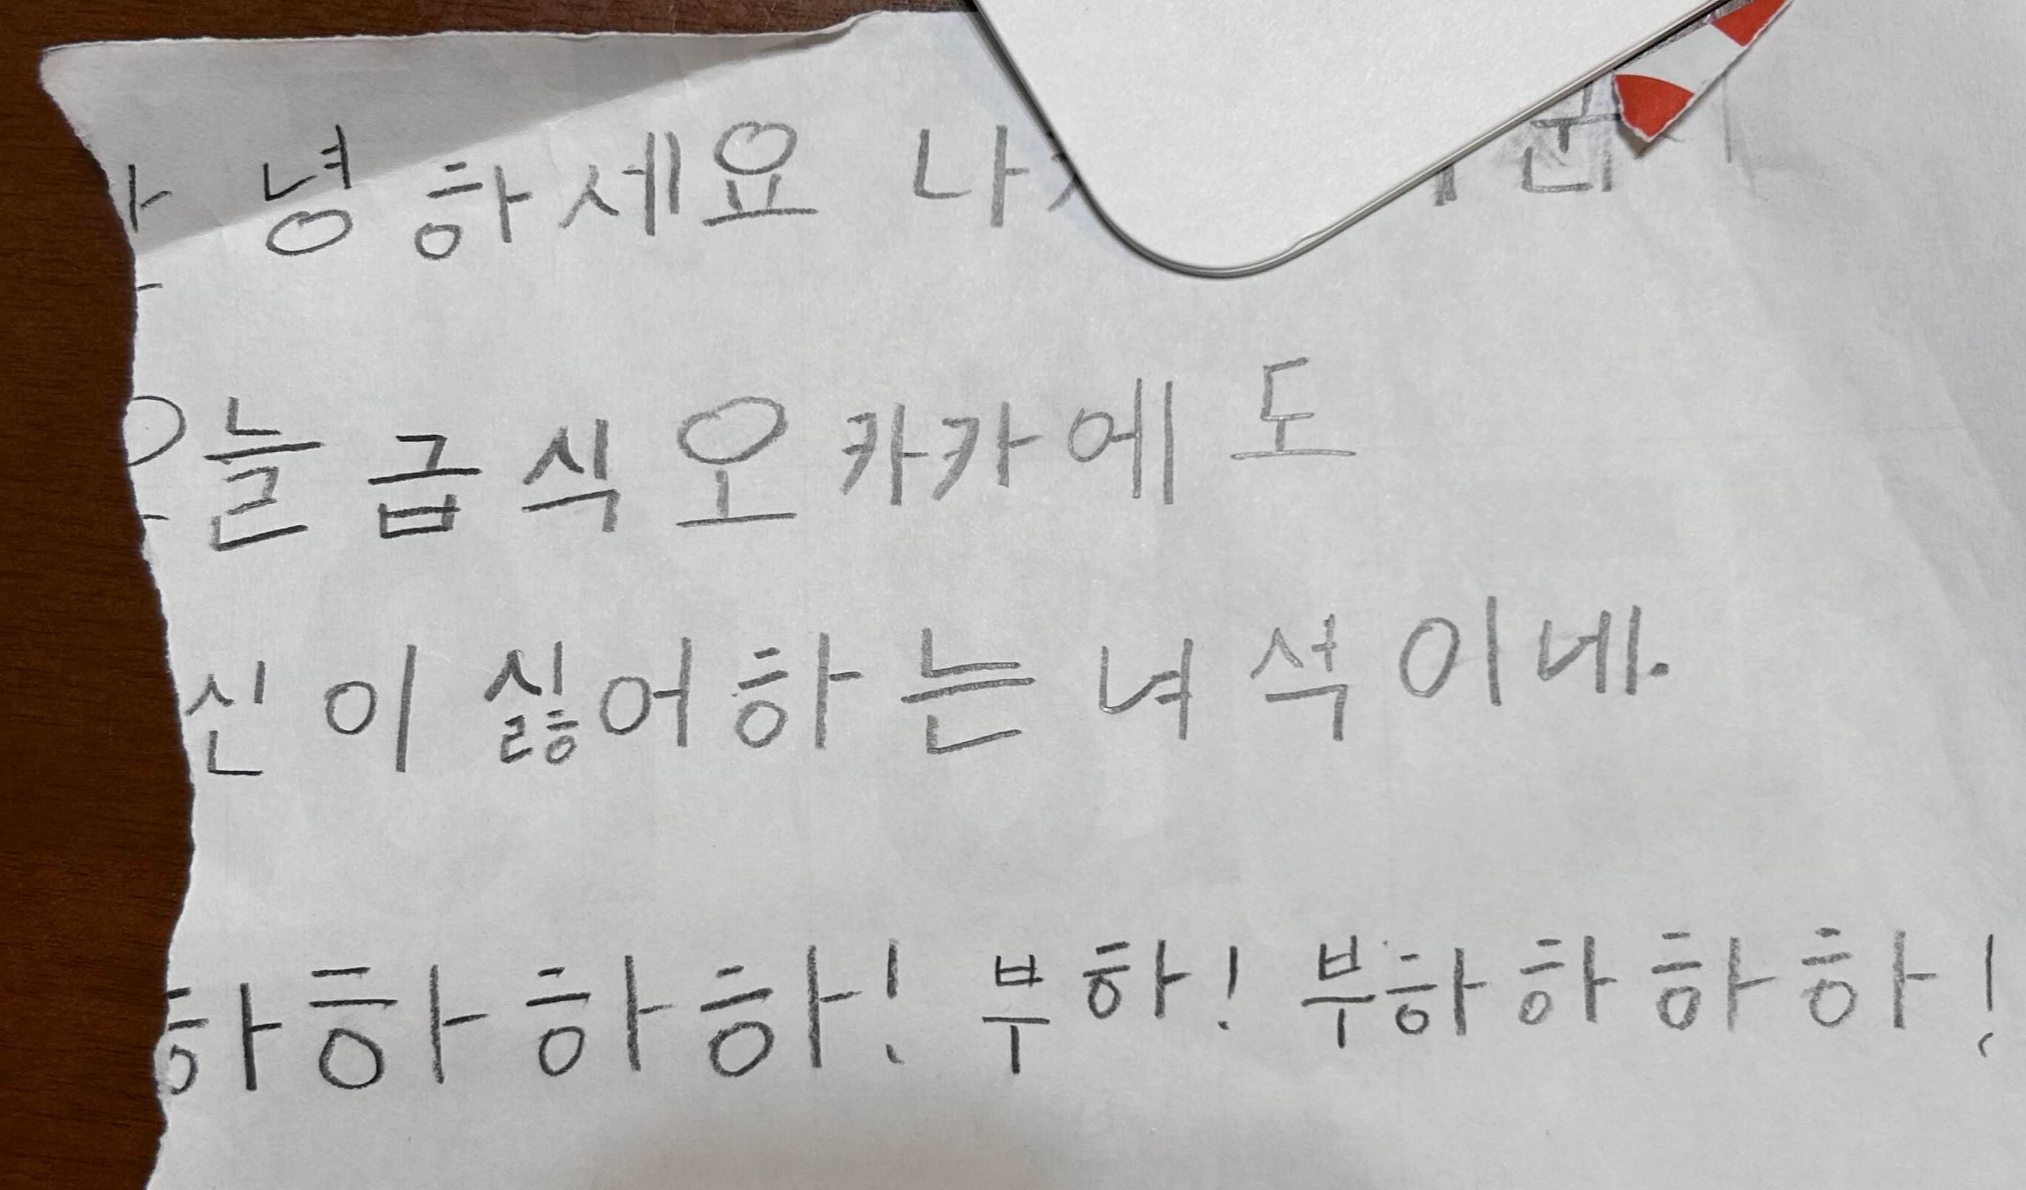 안녕하세요 나
오늘급식오카카에도
신이싫어하는녀석이네.
하하하하! 부하! 부하하하하!